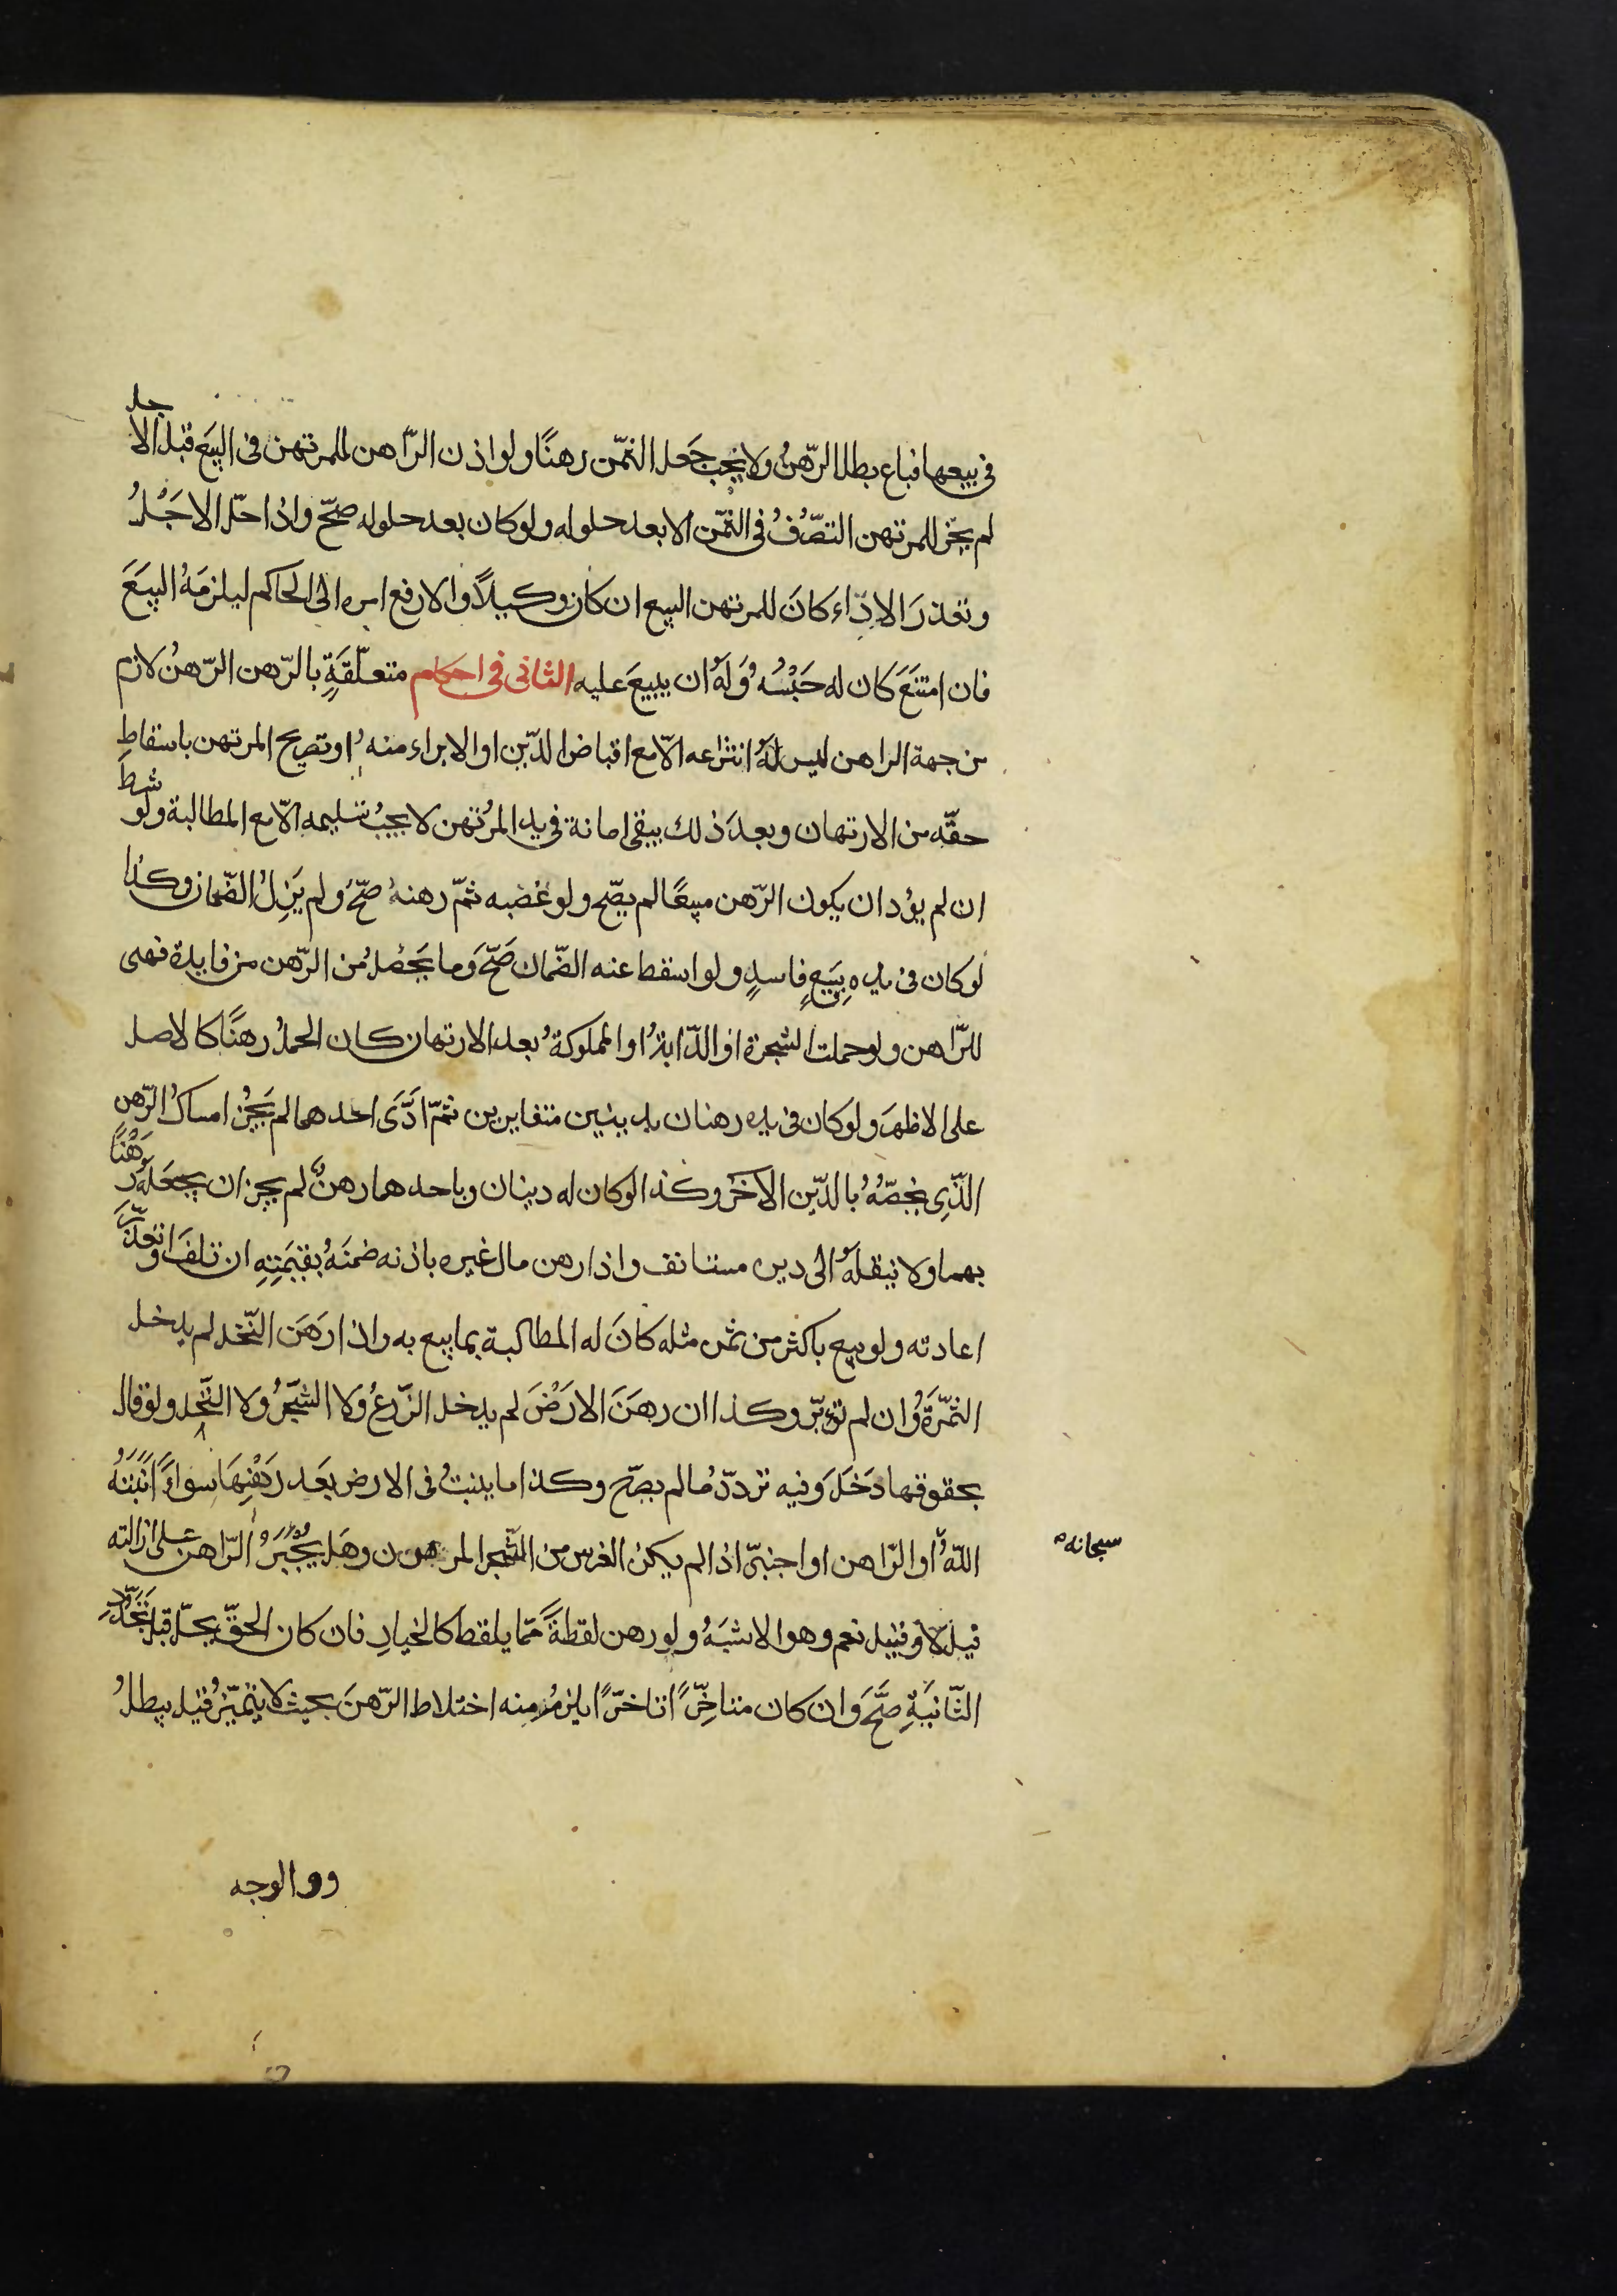 في بيعها فباع بطل الرّهنُ ولا يجب جَعل الثمّن رهنًا ولو اذن الرّاهن للمرتهن فى البيَع قبل الاجل
لم يجز للمرتهن التصّرُفُ فى الثمّن الا بعد حلوله ولو كان بعد حلوله صحّ واذا حلّ الاجَلُ
وتعذرَ الادّاء كانَ للمرتهن البيع ان كان وكيلاً والا رفع امره الى الحاكم ليلزمَهُ البيَعَ
فان امتنَعَ كان له حَبْسُه وَلَهُ ان يبيعَ عليه الثانى فى احكام متعلّقَةٍ بالرّهن الرّهنُ لازم
من جهة الراهن ليس لهُ انتزاعه الّا مع اقباض الدّين او الابراء منه او تصريح المرتهن باسقاطِ
حقّه من الارتهان وبعدَ ذلك يبقى امانة فى يد المُرتهن لا يجبُ تسليمه الّا مع المطالبة ولو شرط
ان لم يؤد ان يكون الرّهن مبيعًا لم يصّح ولو غصبه ثمّ رهنهُ صحّ ولم يَزِلُ الضّمان وكذا
لو كان فى يدهِ ببَيعٍ فاسدٍ ولو اسقط عنه الضّمان صَحّ وَما يَحصُلُ من الرّهن من فايدة فهى
للرّاهن ولو حملت الشجرة او الدّابةُ او المملوكةُ بعد الارتهان كان الحملُ رهنًا كالاصل
على الاظهرَ ولو كان فى يده رهنان بدينين متغايرين ثمّ ادَّىَ احدهما لم يَجُز امساكُ الرّهن
الذّى يخصّهُ بالدّين الاخَر وكذا لو كان له دينان وباحدهما رهنٌ لم يجز ان يجعَلهُ رَهْنًا
بهما ولا ينقلهُ الى دين مستانف واذا رهن مال غيره باذنه ضمنَهُ بقيَمتِهِ ان تلفَ او تعذّرَ
اعادته ولو بيع باكثر من ثمن مثله كانَ له المطالبة بما بيع به واذا رَهَن النّخل لم يدخل
الثمّرَةُ وان لم تؤبّر وكذا ان رهَنَ الارَضَ لم يدخل الزّرعُ وَلا الشجَرُ ولا النّخل ولو قال
بحقوقها دَخَلَ وَفيه تردّدٌ ما لم يصرّح وكذا ما ينبتُ فى الارض بعَد رَهْنِهَا سواءً اَنْبَتَهُ
اللّهُ او الرّاهن او اجنبىّ اذا لم يكن الغرس من الشّجر المرهون وهَل يُجْبَرُ الرّاهن على ازالته
سبحانه
قيل لا وقيل نعم وهو الاشبَهُ ولو رهن لقطةً ممّا يلقط كالخيارِ فان كان الحقّ يحلّ قبل تَجَدُّدِ
الثّانيَةِ صَحَّ وَان كان متاخِّرًا تاخرّا يلزمُ منه اختلاط الرّهنَ بحيث لا يتميّزُ قيل يبطلُ
والوجه